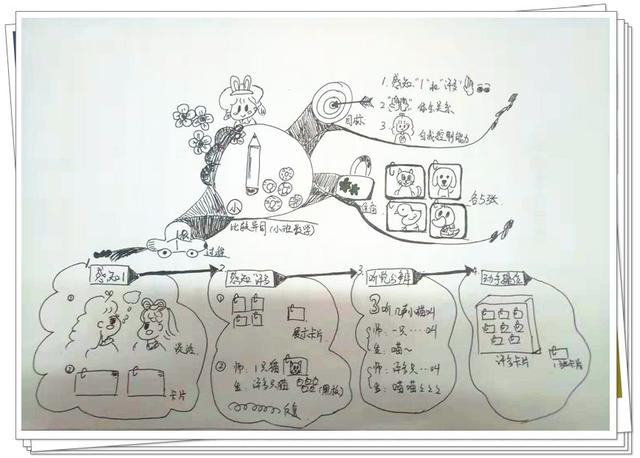 1. 感知"1"和"许多"
2.
3.
自我控制能力
目标
准备
各5张
小
比较异同(小班数学)
过程
1.
感知1
2.
感知"许多
3.
听觉分辨
4.
动手操作
①
谈话
②
卡片
①
展示卡片
②
师：1只猫
生：许多只猫
(黑板)
反复
听几声小猫叫
师：一只…叫
生：喵~
师：许多只…叫
生：喵喵
许多卡片
1张卡片